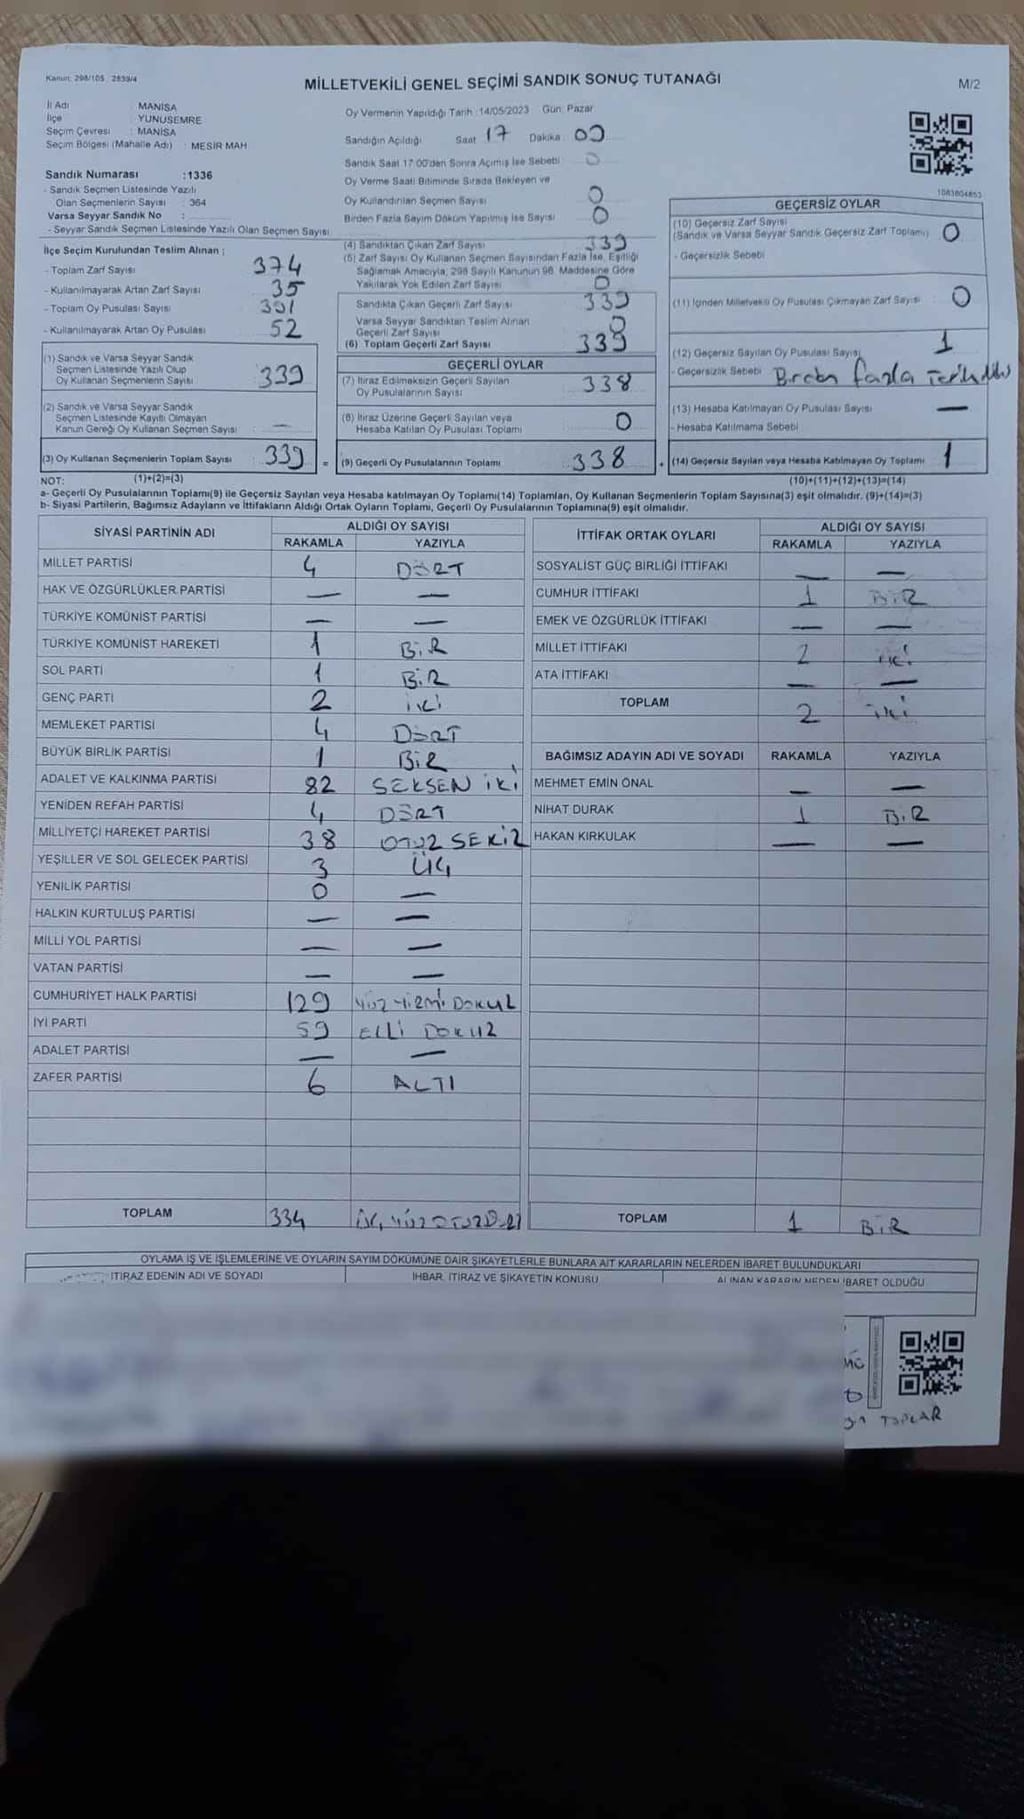 Kanun: 298/105 2839/4
MİLLETVEKİLİ GENEL SEÇİMİ SANDIK SONUÇ TUTANAĞI
M/2
İl Adı : MANİSA
İlçe : YUNUSEMRE
Seçim Çevresi : MANİSA
Seçim Bölgesi (Mahalle Adı) : MESİR MAH
Sandık Numarası :1336
- Sandık Seçmen Listesinde Yazılı
Olan Seçmenlerin Sayısı : 364
Varsa Seyyar Sandık No :
- Seyyar Sandık Seçmen Listesinde Yazılı Olan Seçmen Sayısı
Oy Vermenin Yapıldığı Tarih :14/05/2023 Gün: Pazar
Sandığın Açıldığı Saat 17 Dakika 00
Sandık Saat 17:00'den Sonra Açımış İse Sebebi 0
Oy Verme Saati Bitiminde Sırada Bekleyen ve
Oy Kullandırılan Seçmen Sayısı 0
Birden Fazla Sayım Döküm Yapılmış İse Sayısı 0
1083604853
İlçe Seçim Kurulundan Teslim Alınan ;
- Toplam Zarf Sayısı 374
- Kullanılmayarak Artan Zarf Sayısı 35
- Toplam Oy Pusulası Sayısı 391
- Kullanılmayarak Artan Oy Pusulası 52
(1) Sandık ve Varsa Seyyar Sandık
Seçmen Listesinde Yazılı Olup
Oy Kullanan Seçmenlerin Sayısı 339
(2) Sandık ve Varsa Seyyar Sandık
Seçmen Listesinde Kayıtlı Olmayan
Kanun Gereği Oy Kullanan Seçmen Sayısı —
(3) Oy Kullanan Seçmenlerin Toplam Sayısı 339 =
(4) Sandıktan Çıkan Zarf Sayısı 339
(5) Zarf Sayısı Oy Kullanan Seçmen Sayısından Fazla İse, Eşitliği
Sağlamak Amacıyla, 298 Sayılı Kanunun 98. Maddesine Göre
Yakılarak Yok Edilen Zarf Sayısı 0
Sandıkta Çıkan Geçerli Zarf Sayısı 339
Varsa Seyyar Sandıktan Teslim Alınan
Geçerli Zarf Sayısı 0
(6) Toplam Geçerli Zarf Sayısı 339
GEÇERLİ OYLAR
(7) İtiraz Edilmeksizin Geçerli Sayılan
Oy Pusulalarının Sayısı 338
(8) İtiraz Üzerine Geçerli Sayılan veya
Hesaba Katılan Oy Pusulası Toplamı 0
(9) Geçerli Oy Pusulalarının Toplamı 338 +
GEÇERSİZ OYLAR
(10) Geçersiz Zarf Sayısı
(Sandık ve Varsa Seyyar Sandık Geçersiz Zarf Toplamı) 0
- Geçersizlik Sebebi
(11) İçinden Milletvekili Oy Pusulası Çıkmayan Zarf Sayısı 0
(12) Geçersiz Sayılan Oy Pusulası Sayısı 1
- Geçersizlik Sebebi fazla
(13) Hesaba Katılmayan Oy Pusulası Sayısı —
- Hesaba Katılmama Sebebi
(14) Geçersiz Sayılan veya Hesaba Katılmayan Oy Toplamı 1
NOT: (1)+(2)=(3)
(10)+(11)+(12)+(13)=(14)
a- Geçerli Oy Pusulalarının Toplamı(9) ile Geçersiz Sayılan veya Hesaba katılmayan Oy Toplamı(14) Toplamları, Oy Kullanan Seçmenlerin Toplam Sayısına(3) eşit olmalıdır. (9)+(14)=(3)
b- Siyasi Partilerin, Bağımsız Adayların ve İttifakların Aldığı Ortak Oyların Toplamı, Geçerli Oy Pusulalarının Toplamına(9) eşit olmalıdır.
SİYASİ PARTİNİN ADI ALDIĞI OY SAYISI
RAKAMLA YAZIYLA
MİLLET PARTİSİ 4 DÖRT
HAK VE ÖZGÜRLÜKLER PARTİSİ — —
TÜRKİYE KOMÜNİST PARTİSİ — —
TÜRKİYE KOMÜNİST HAREKETİ 1 BİR
SOL PARTİ 1 BİR
GENÇ PARTİ 2 İKİ
MEMLEKET PARTİSİ 4 DÖRT
BÜYÜK BİRLİK PARTİSİ 1 BİR
ADALET VE KALKINMA PARTİSİ 82 SEKSEN İKİ
YENİDEN REFAH PARTİSİ 4 DÖRT
MİLLİYETÇİ HAREKET PARTİSİ 38 OTUZ SEKİZ
YEŞİLLER VE SOL GELECEK PARTİSİ 3 ÜÇ
YENİLİK PARTİSİ 0 —
HALKIN KURTULUŞ PARTİSİ — —
MİLLİ YOL PARTİSİ — —
VATAN PARTİSİ — —
CUMHURİYET HALK PARTİSİ 129 YÜZ YİRMİ DOKUZ
İYİ PARTİ 59 ELLİ DOKUZ
ADALET PARTİSİ — —
ZAFER PARTİSİ 6 ALTI
TOPLAM 334 ÜÇ YÜZ OTUZ DÖRT
İTTİFAK ORTAK OYLARI ALDIĞI OY SAYISI
RAKAMLA YAZIYLA
SOSYALİST GÜÇ BİRLİĞİ İTTİFAKI — —
CUMHUR İTTİFAKI 1 BİR
EMEK VE ÖZGÜRLÜK İTTİFAKI — —
MİLLET İTTİFAKI 2 İKİ
ATA İTTİFAKI — —
TOPLAM 2 İKİ
BAĞIMSIZ ADAYIN ADI VE SOYADI RAKAMLA YAZIYLA
MEHMET EMİN ÖNAL — —
NİHAT DURAK 1 BİR
HAKAN KIRKULAK — —
TOPLAM 1 BİR
OYLAMA İŞ VE İŞLEMLERİNE VE OYLARIN SAYIM DÖKÜMÜNE DAİR ŞİKAYETLERLE BUNLARA AİT KARARLARIN NELERDEN İBARET BULUNDUKLARI
İTİRAZ EDENİN ADI VE SOYADI İHBAR, İTİRAZ VE ŞİKAYETİN KONUSU ALINAN KARARIN NEDEN İBARET OLDUĞU
TOPLAR